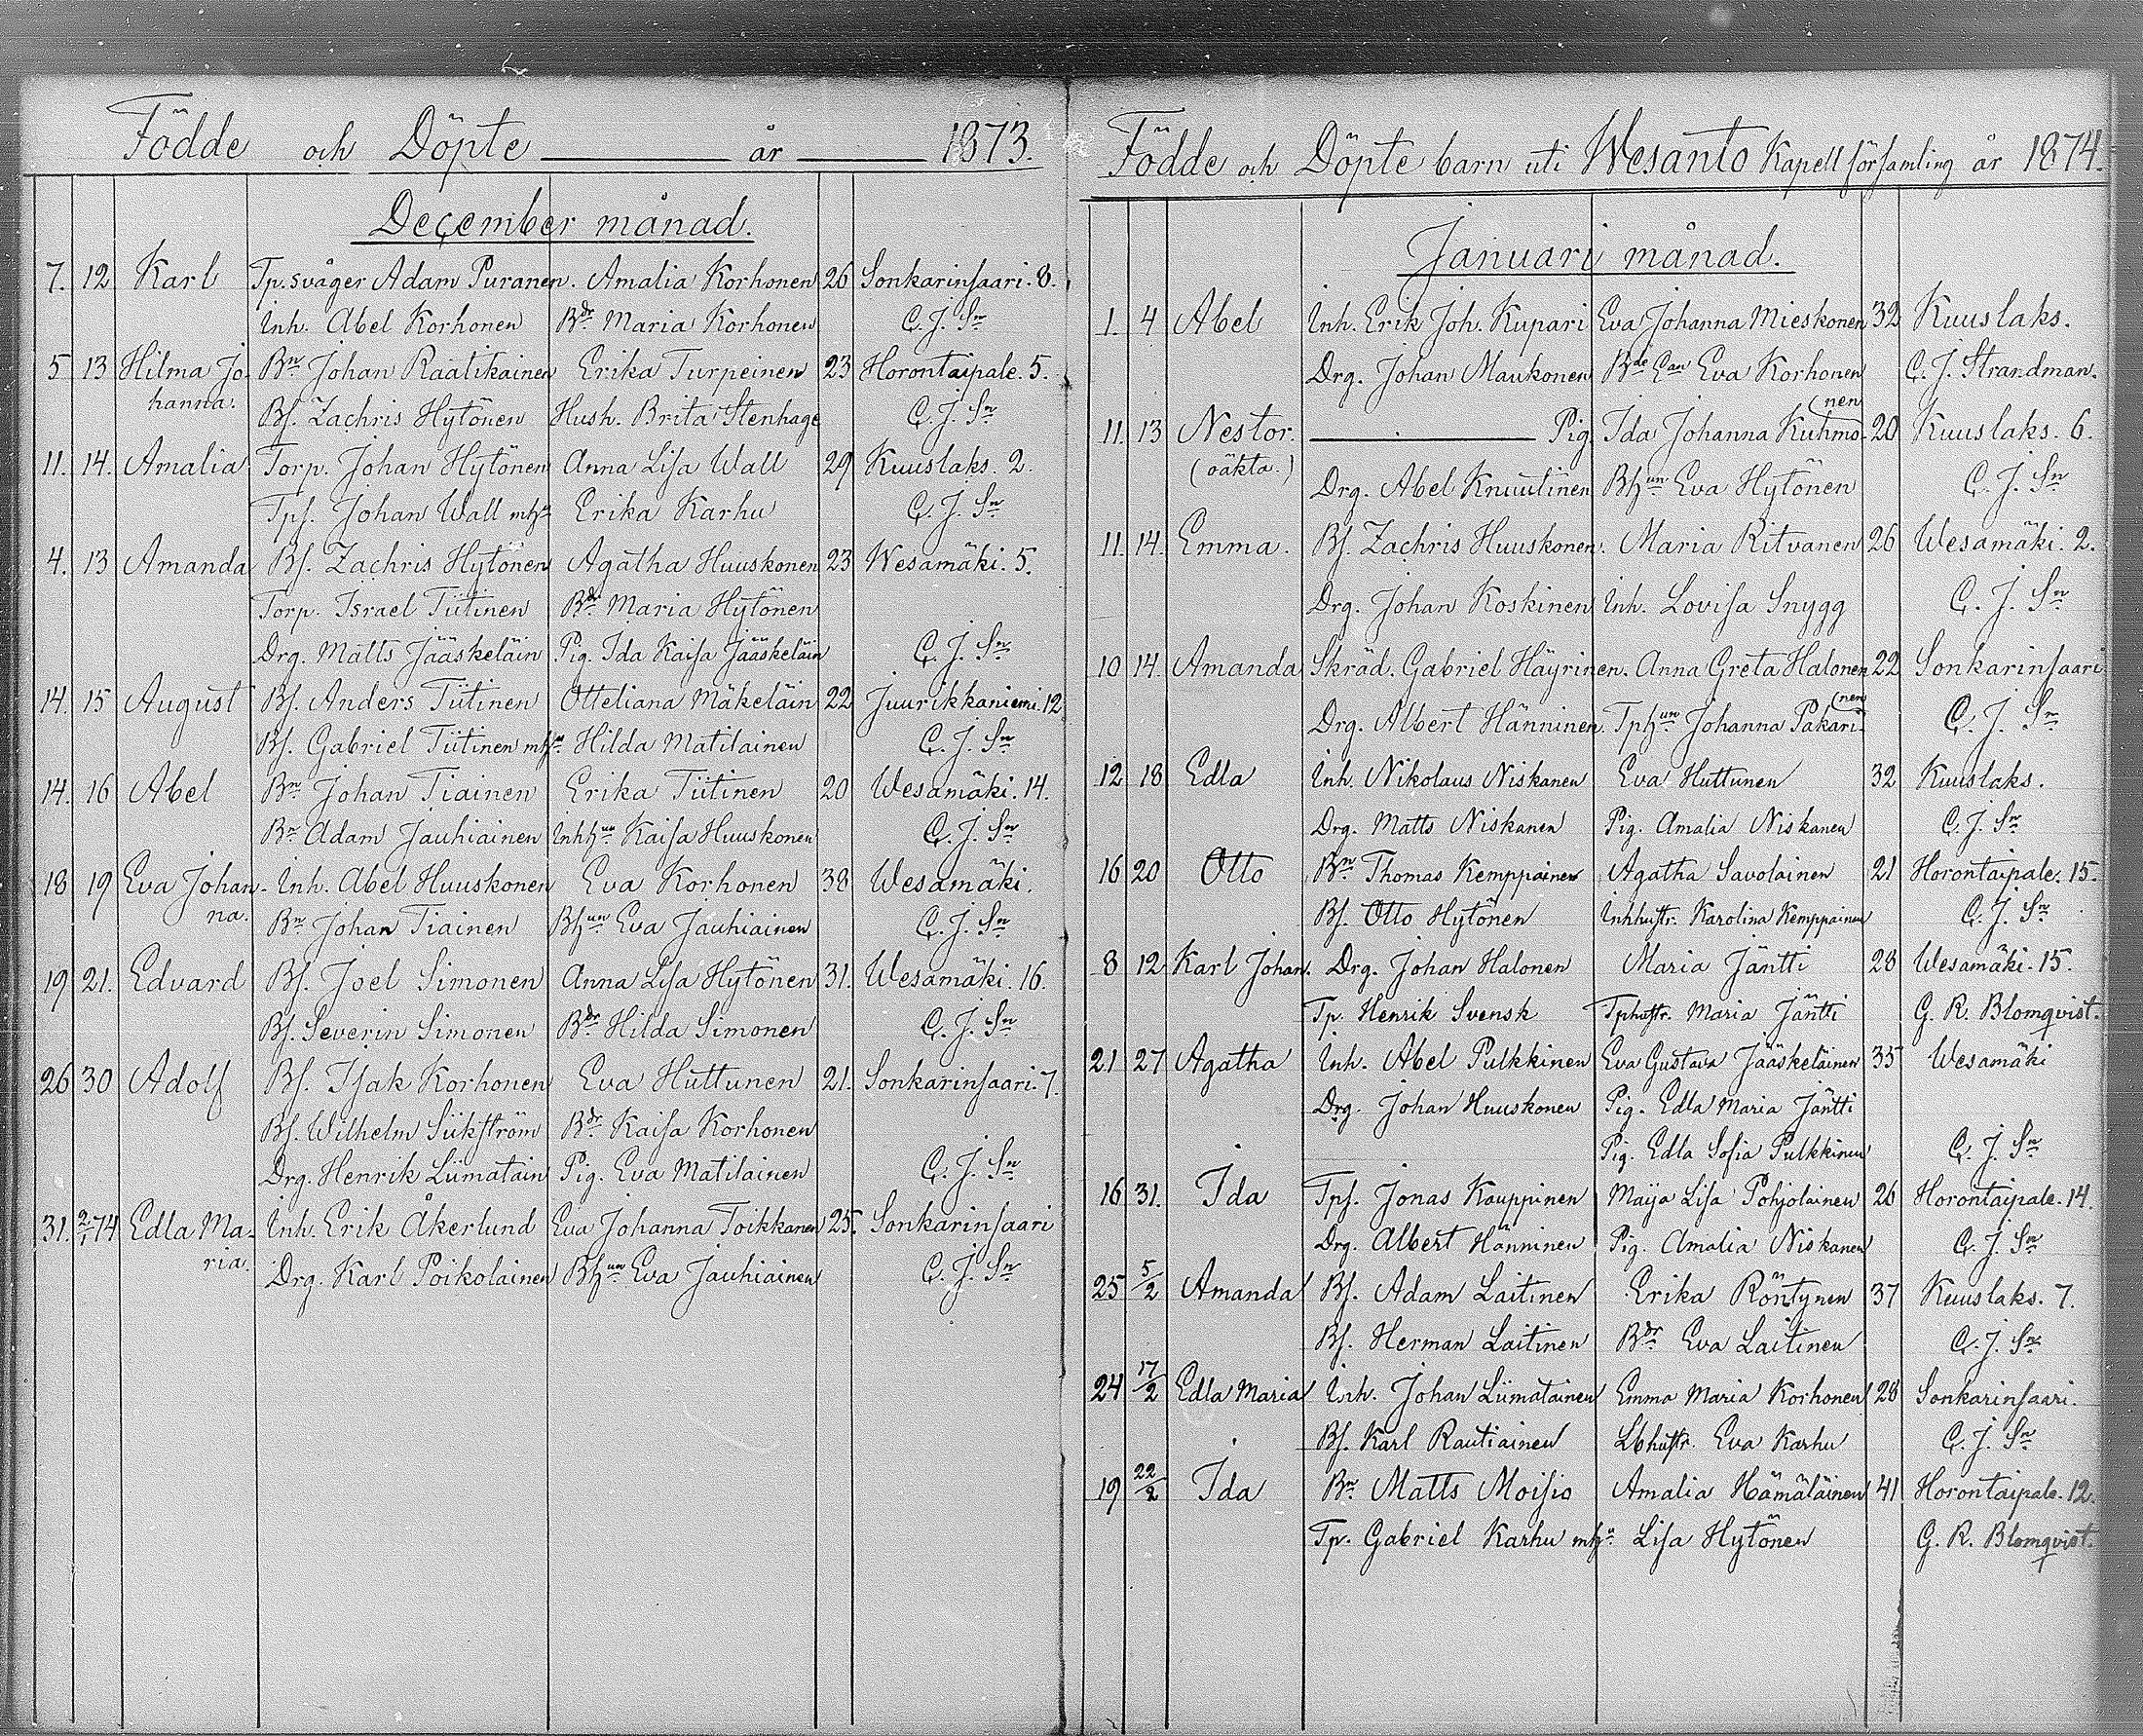 Födde och Döpte år 1873.
December månad.
7. 12 Karl Tp. svåger Adam Puranen. Amalia Korhonen 26 Sonkarinsaari. 8.
Inh. Abel Korhonen Bdr Maria Korhonen C. J. Sn
5 13 Hilma Jo- Bn Johan Raatikainen Erika Turpeinen 23 Horontaipale. 5.
hanna. Bs. Zachris Hytönen Hush. Brita Stenhage C. J. Sn
11. 14. Amalia Torp. Johan Hytönen Anna Lisa Wall 29 Kuuslaks. 2.
Tps. Johan Wall mhu Erika Karhu C. J. Sn
4. 13 Amanda Bs. Zachris Hytönen Agatha Huuskonen 23 Wesamäki. 5.
Torp. Israel Tiitinen Bdr Maria Hytönen
Drg. Matts Jääskeläin Pig. Ida Kaisa Jääskeläin C. J. Sn
14. 15 August Bs. Anders Tiitinen Otteliana Mäkeläin 22 Juurikkaniemi. 12
Bs. Gabriel Tiitinen mhu Hilda Matilainen C. J. Sn
14. 16 Abel Bn Johan Tiainen Erika Tiitinen 20 Wesamäki. 14.
Bn Adam Jauhiainen Inhhun Kaisa Huuskonen C. J. Sn
18 19 Eva Johan- Inh. Abel Huuskonen Eva Korhonen 38 Wesamäki.
na. Bn Johan Tiainen Bhun Eva Jauhiainen C. J. Sn
19 21. Edvard Bs. Joel Simonen Anna Lisa Hytönen 31. Wesamäki. 16.
Bs. Severin Simonen Bdr Hilda Simonen C. J. Sn
26 30 Adolf Bs. Isak Korhonen Eva Huttunen 21. Sonkarinsaari. 7.
Bs. Wilhelm Siikström Bdr Kaisa Korhonen
Drg. Henrik Liimatain Pig. Eva Matilainen C. J. Sn
31. 2/1 74 Edla Ma- Inh. Erik Åkerlund Eva Johanna Toikkanen 25. Sonkarinsaari
ria. Drg. Karl Poikolainen Bhun Eva Jauhiainen C. J. Sn
Födde och Döpte barn uti Wesanto Kapellförsamling år 1874.
Januari månad.
1. 4 Abel Inh. Erik Joh. Kupari Eva Johanna Mieskonen 32 Kuuslaks.
Drg. Johan Maukonen Eva Korhonen C. J. Strandman.
11. 13 Nestor. Pig. Ida Johanna Kuhmo- (nen 20 Kuuslaks. 6.
(oäkta.) Drg. Abel Knuutinen Bhun Eva Hytönen C. J. Sn
11. 14. Emma. Bs. Zachris Huuskonen. Maria Ritvanen 26 Wesamäki. 2.
Drg. Johan Koskinen Inh. Lovisa Snygg C. J. Sn
10 14. Amanda Skräd. Gabriel Häyrinen. Anna Greta Halonen 22 Sonkarinsaari
Drg. Albert Hänninen. Tphun Johanna Pakari- (nen C. J. Sn
12 18 Edla Inh. Nikolaus Niskanen Eva Huttunen 32 Kuuslaks.
Drg. Matts Niskanen Pig. Amalia Niskanen C. J. Sn
16 20 Otto Bn Thomas Kemppainen Agatha Savolainen 21 Horontaipale. 15.
Bs. Otto Hytönen Inhhustr. Karolina Kemppainen C. J. Sn
8 12 Karl Johan. Drg. Johan Halonen Maria Jäntti 28 Wesamäki. 15.
Tp. Henrik Svensk Tphustr. Maria Jäntti G. R. Blomqvist.
21 27 Agatha Inh. Abel Pulkkinen Eva Gustava Jääskeläinen 35 Wesamäki
Drg. Johan Huuskonen Pig. Edla Maria Jäntti
Pig. Edla Sofia Pulkkinen C. J. Sn
16 31. Ida Tps. Jonas Kauppinen Maija Lisa Pohjolainen 26 Horontaipale. 14.
Drg. Albert Hänninen Pig. Amalia Niskanen C. J. Sn
25 5/2 Amanda Bs. Adam Laitinen Erika Röntynen 37 Kuuslaks. 7.
Bs. Herman Laitinen Bdr Eva Laitinen C. J. Sn
24 17/2 Edla Maria Inh. Johan Liimatainen Emma Maria Korhonen 28 Sonkarinsaari.
Bs. Karl Rautiainen Lbhustr. Eva Karhu C. J. Sn
19 22/2 Ida Bn Matts Moisio Amalia Hämäläinen 41 Horontaipale. 12.
Tp. Gabriel Karhu mhu Lisa Hytönen G. R. Blomqvist.